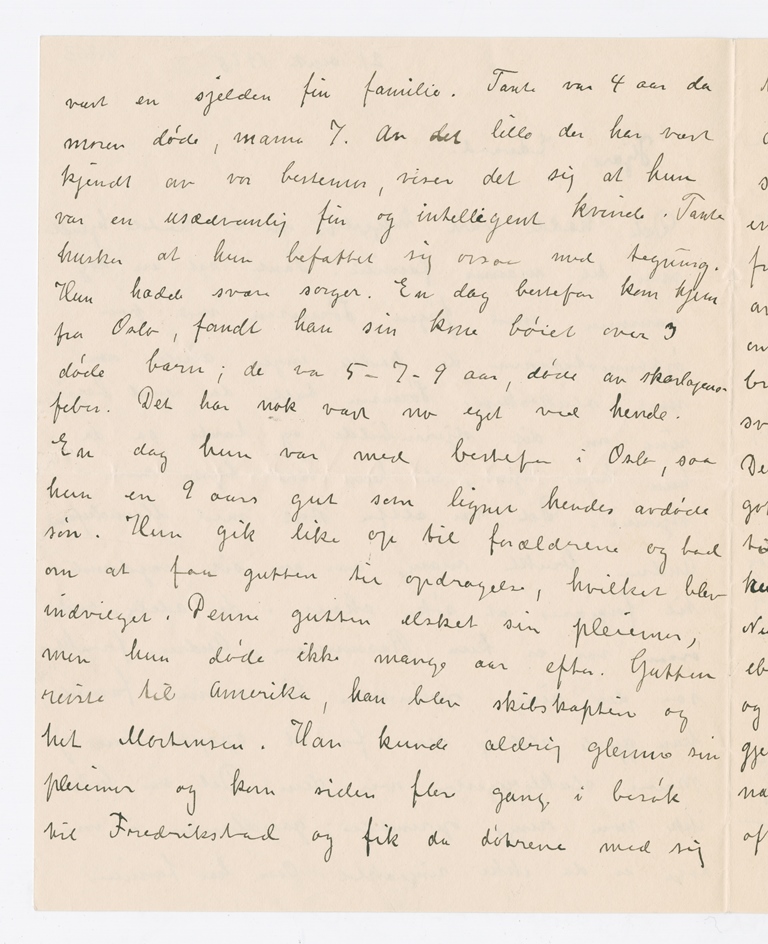 vært en sjelden fin familie. Tante var 4 aar da
moren døde, mama 7. Av det lille der har vært
kjendt av vor bestemor, viser det sig at hun
var en usædvanlig fin og intelligent kvinde. Tante
husker at hun befattet sig ogsaa med tegning.
Hun hadde svære sorger. En dag bestefar kom hjem
fra Oslo, fandt han sin kone bøiet over 3
døde barn; de va 5-7-9 aar, døde av skarlagens-
feber. Det har nok vært no eget ved hende.
En dag hun var med bestefar i Oslo, saa
hun en 9 aars gut som lignet hendes avdøde
søn. Hun gik like op til forældrene og bad
om at faa gutten til opdragelse, hvilket blev
indvilget. Denne gutten elsket sin pleiemor,
men hun døde ikke mange aar efter. Gutten
reiste til Amerika, han blev skibskaptein og
het Mortensen. Han kunde aldrig glemme sin
pleiemor og kom siden fler gange i besøk
til Fredrikstad og fik da døtrene med sig